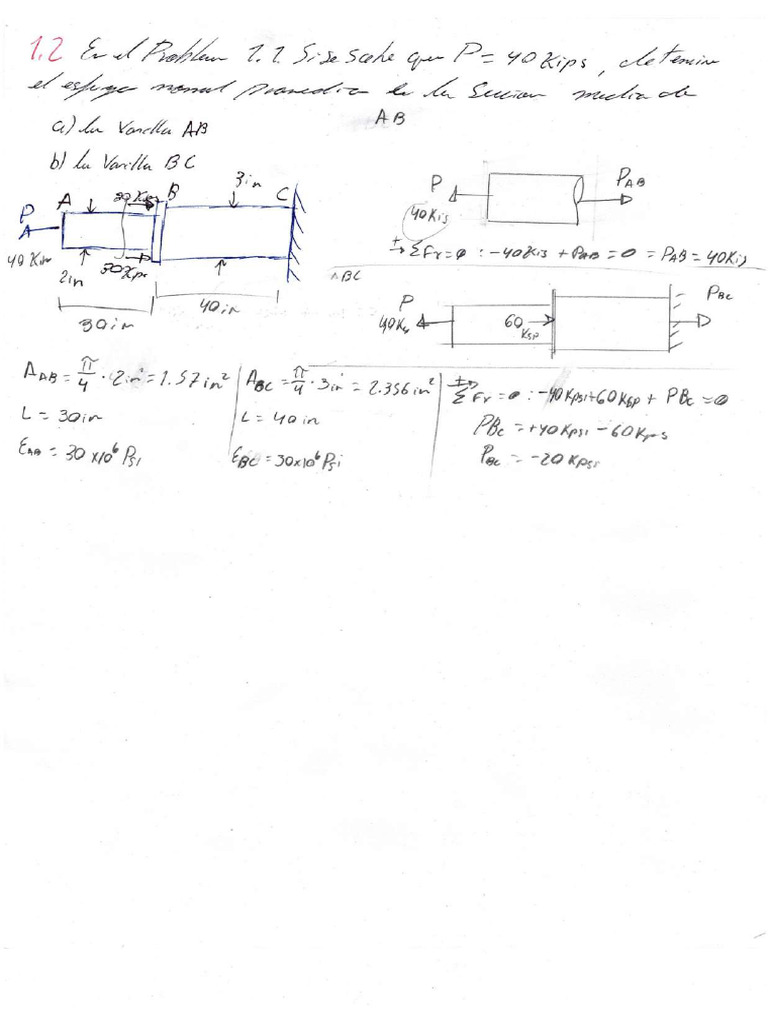 1.2 En el Problem 1.1 Si se sabe que P = 40 Kips, determin
el esfuerzo normal promedio en la Seccion media de
a) la varilla AB
b) la Varilla BC
AB
P
40 Kis
P_AB
+→ ΣFx=0 : -40Kis + P_AB = 0 = P_AB = 40Kis
P
A
B
C
3in
30 Kips
2in
30in
40in
ABC
P
60 Ksp
P_BC
A_AB = π/4 · 2in² = 1.57in²
L = 30in
E_AB = 30x10⁶ Psi
A_BC = π/4 · 3in² = 2.356 in²
L = 40in
E_BC = 30x10⁶ Psi
+→ ΣFx = 0 : -40Kpsi+60Ksp + PBc = 0
PBc = +40Kpsi - 60Kps
P_Bc = -20Kpsi